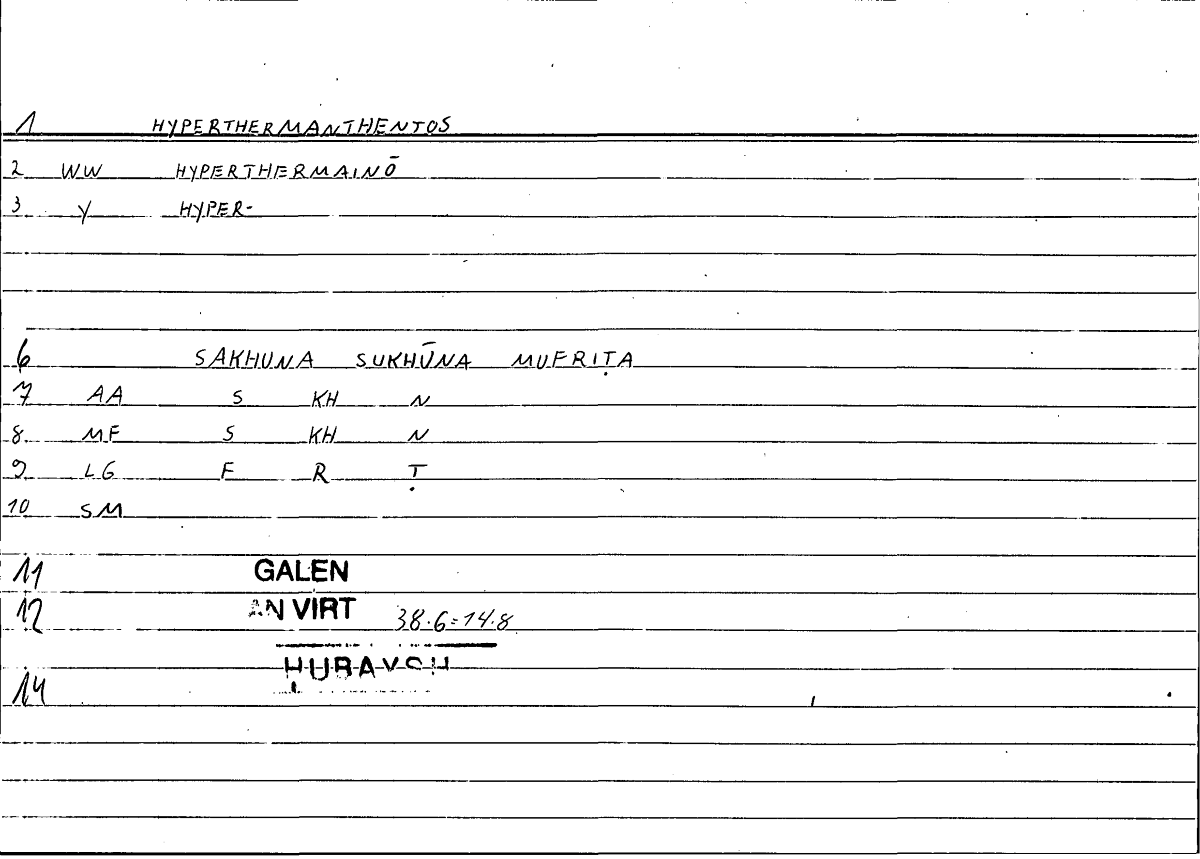 1 HYPERTHERMANTHENTOS
2 WW HYPERTHERMAINŌ
3 Y HYPER-
6 SAKHUNA SUKHŪNA MUFRIṬA
7 AA S KH N
8 MF S KH N
9 LG F R Ṭ
10 SM
11 GALEN
12 AN VIRT 38.6=14.8
ḤUBAYSH
14